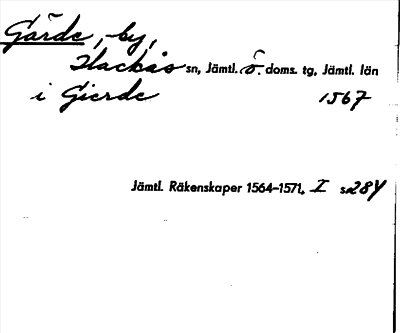 Gärde, by,
Hackås sn, Jämtl. ö. doms. tg, Jämtl. län
i Gierde 1567
Jämtl. Räkenskaper 1564-1571, I s.284